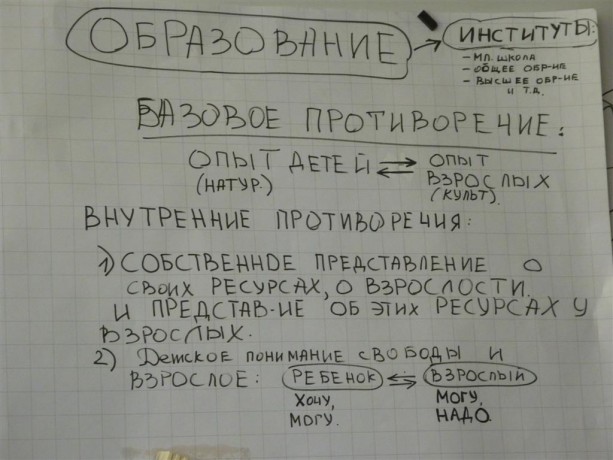 ОБРАЗОВАНИЕ → ИНСТИТУТЫ:
- МЛ. ШКОЛА
- ОБЩЕЕ ОБР-ИЕ
- ВЫСШЕЕ ОБР-ИЕ
И Т.Д.
БАЗОВОЕ ПРОТИВОРЕЧИЕ:
ОПЫТ ДЕТЕЙ ⇄ ОПЫТ
(НАТУР.) ВЗРОСЛЫХ
(КУЛЬТ).
ВНУТРЕННИЕ ПРОТИВОРЕЧИЯ:
1) СОБСТВЕННОЕ ПРЕДСТАВЛЕНИЕ О
СВОИХ РЕСУРСАХ, О ВЗРОСЛОСТИ.
И ПРЕДСТАВ-ИЕ ОБ ЭТИХ РЕСУРСАХ У
ВЗРОСЛЫХ.
2) ДЕТСКОЕ ПОНИМАНИЕ СВОБОДЫ И
ВЗРОСЛОЕ: РЕБЕНОК ⇆ ВЗРОСЛЫЙ
ХОЧУ, МОГУ.
МОГУ. НАДО.